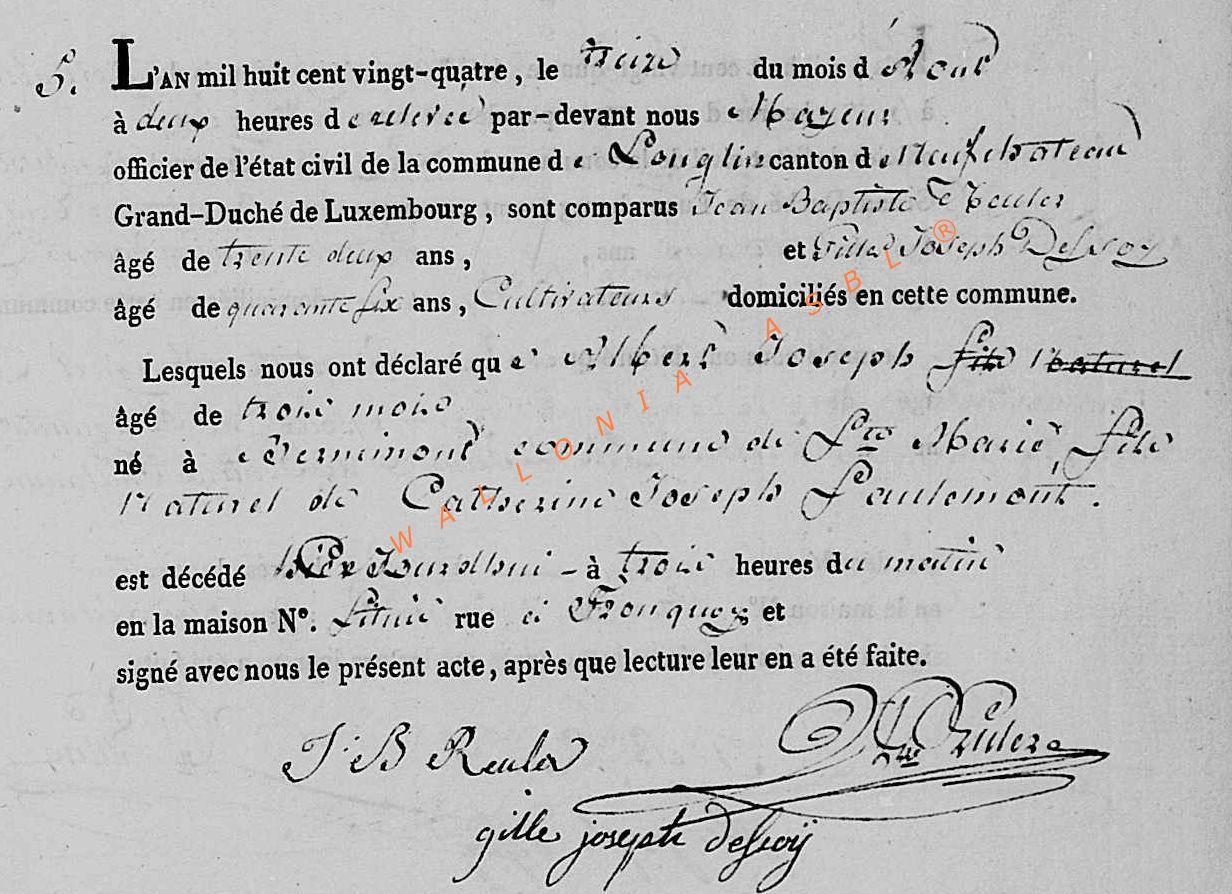 5. L'AN mil huit cent vingt-quatre, le treize du mois d'Aout
à deux heures de relevée par-devant nous Mayeur
officier de l'état civil de la commune de Longlier canton de Neufchateau
Grand-Duché de Luxembourg, sont comparus Jean Baptiste Reuler
âgé de trente deux ans, et Gille Joseph Defroy
âgé de quarante six ans, Cultivateurs domiciliés en cette commune.
Lesquels nous ont déclaré que Albert Joseph fils naturel
âgé de trois mois
né à commune de Ste Marie fils
naturel de Catherine Joseph
est décédé aujourdhui à trois heures du matin
en la maison N°. située rue à Tronquoy et
signé avec nous le présent acte, après que lecture leur en a été faite.
J B Reuler
gille joseph defroÿ
WALLONIA ASBL ®